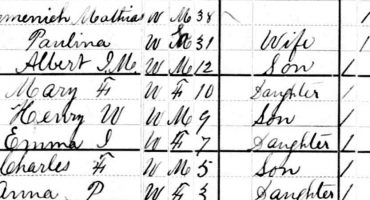 Mathia W M 38 1
Paulina W 31 Wife 1
Albert J. M. W M 12 Son 1
Mary F W F 10 Daughter 1
Henry W W M 9 Son 1
Emma I W F 7 Daughter 1
Charles F W M 5 Son 1
Anna P W F 3 Daughter 1